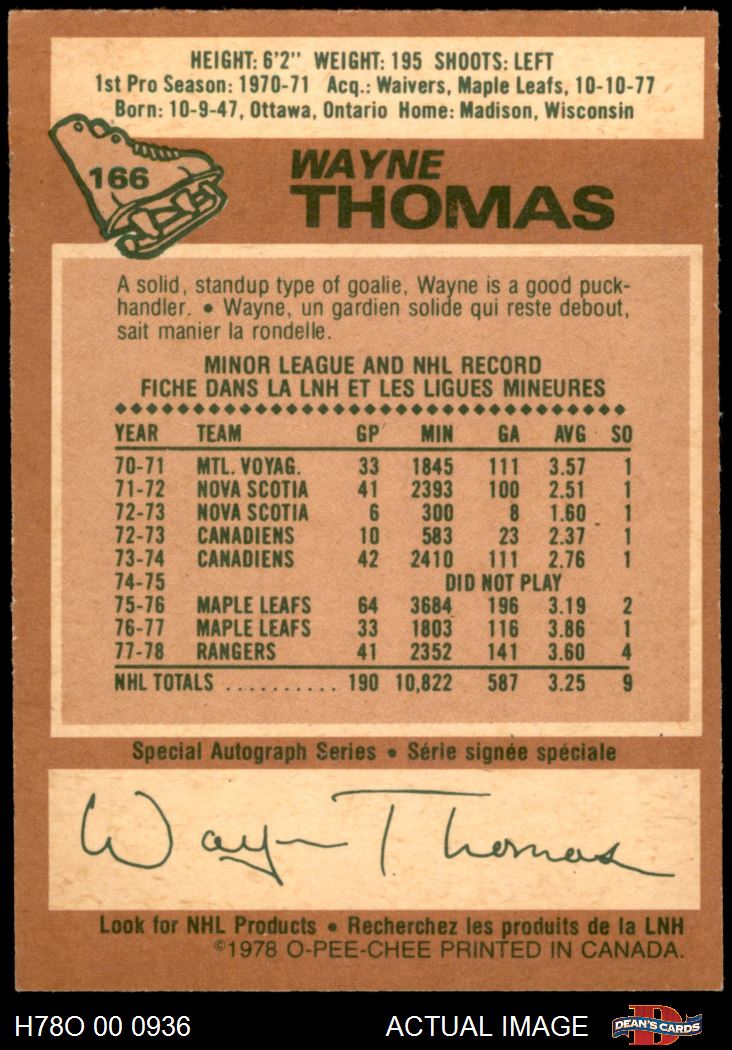 HEIGHT: 6'2" WEIGHT: 195 SHOOTS: LEFT
1st Pro Season: 1970-71 Acq.: Waivers, Maple Leafs, 10-10-77
Born: 10-9-47, Ottawa, Ontario Home: Madison, Wisconsin
166
WAYNE
THOMAS
A solid, standup type of goalie, Wayne is a good puck-
handler. • Wayne, un gardien solide qui reste debout,
sait manier la rondelle.
MINOR LEAGUE AND NHL RECORD
FICHE DANS LA LNH ET LES LIGUES MINEURES
YEAR TEAM GP MIN GA AVG SO
70-71 MTL. VOYAG. 33 1845 111 3.57 1
71-72 NOVA SCOTIA 41 2393 100 2.51 1
72-73 NOVA SCOTIA 6 300 8 1.60 1
72-73 CANADIENS 10 583 23 2.37 1
73-74 CANADIENS 42 2410 111 2.76 1
74-75 DID NOT PLAY
75-76 MAPLE LEAFS 64 3684 196 3.19 2
76-77 MAPLE LEAFS 33 1803 116 3.86 1
77-78 RANGERS 41 2352 141 3.60 4
NHL TOTALS .......... 190 10,822 587 3.25 9
Special Autograph Series • Série signée spéciale
Wayne Thomas
Look for NHL Products • Recherchez les produits de la LNH
©1978 O-PEE-CHEE PRINTED IN CANADA.
H78O 00 0936 ACTUAL IMAGE D DEAN'S CARDS